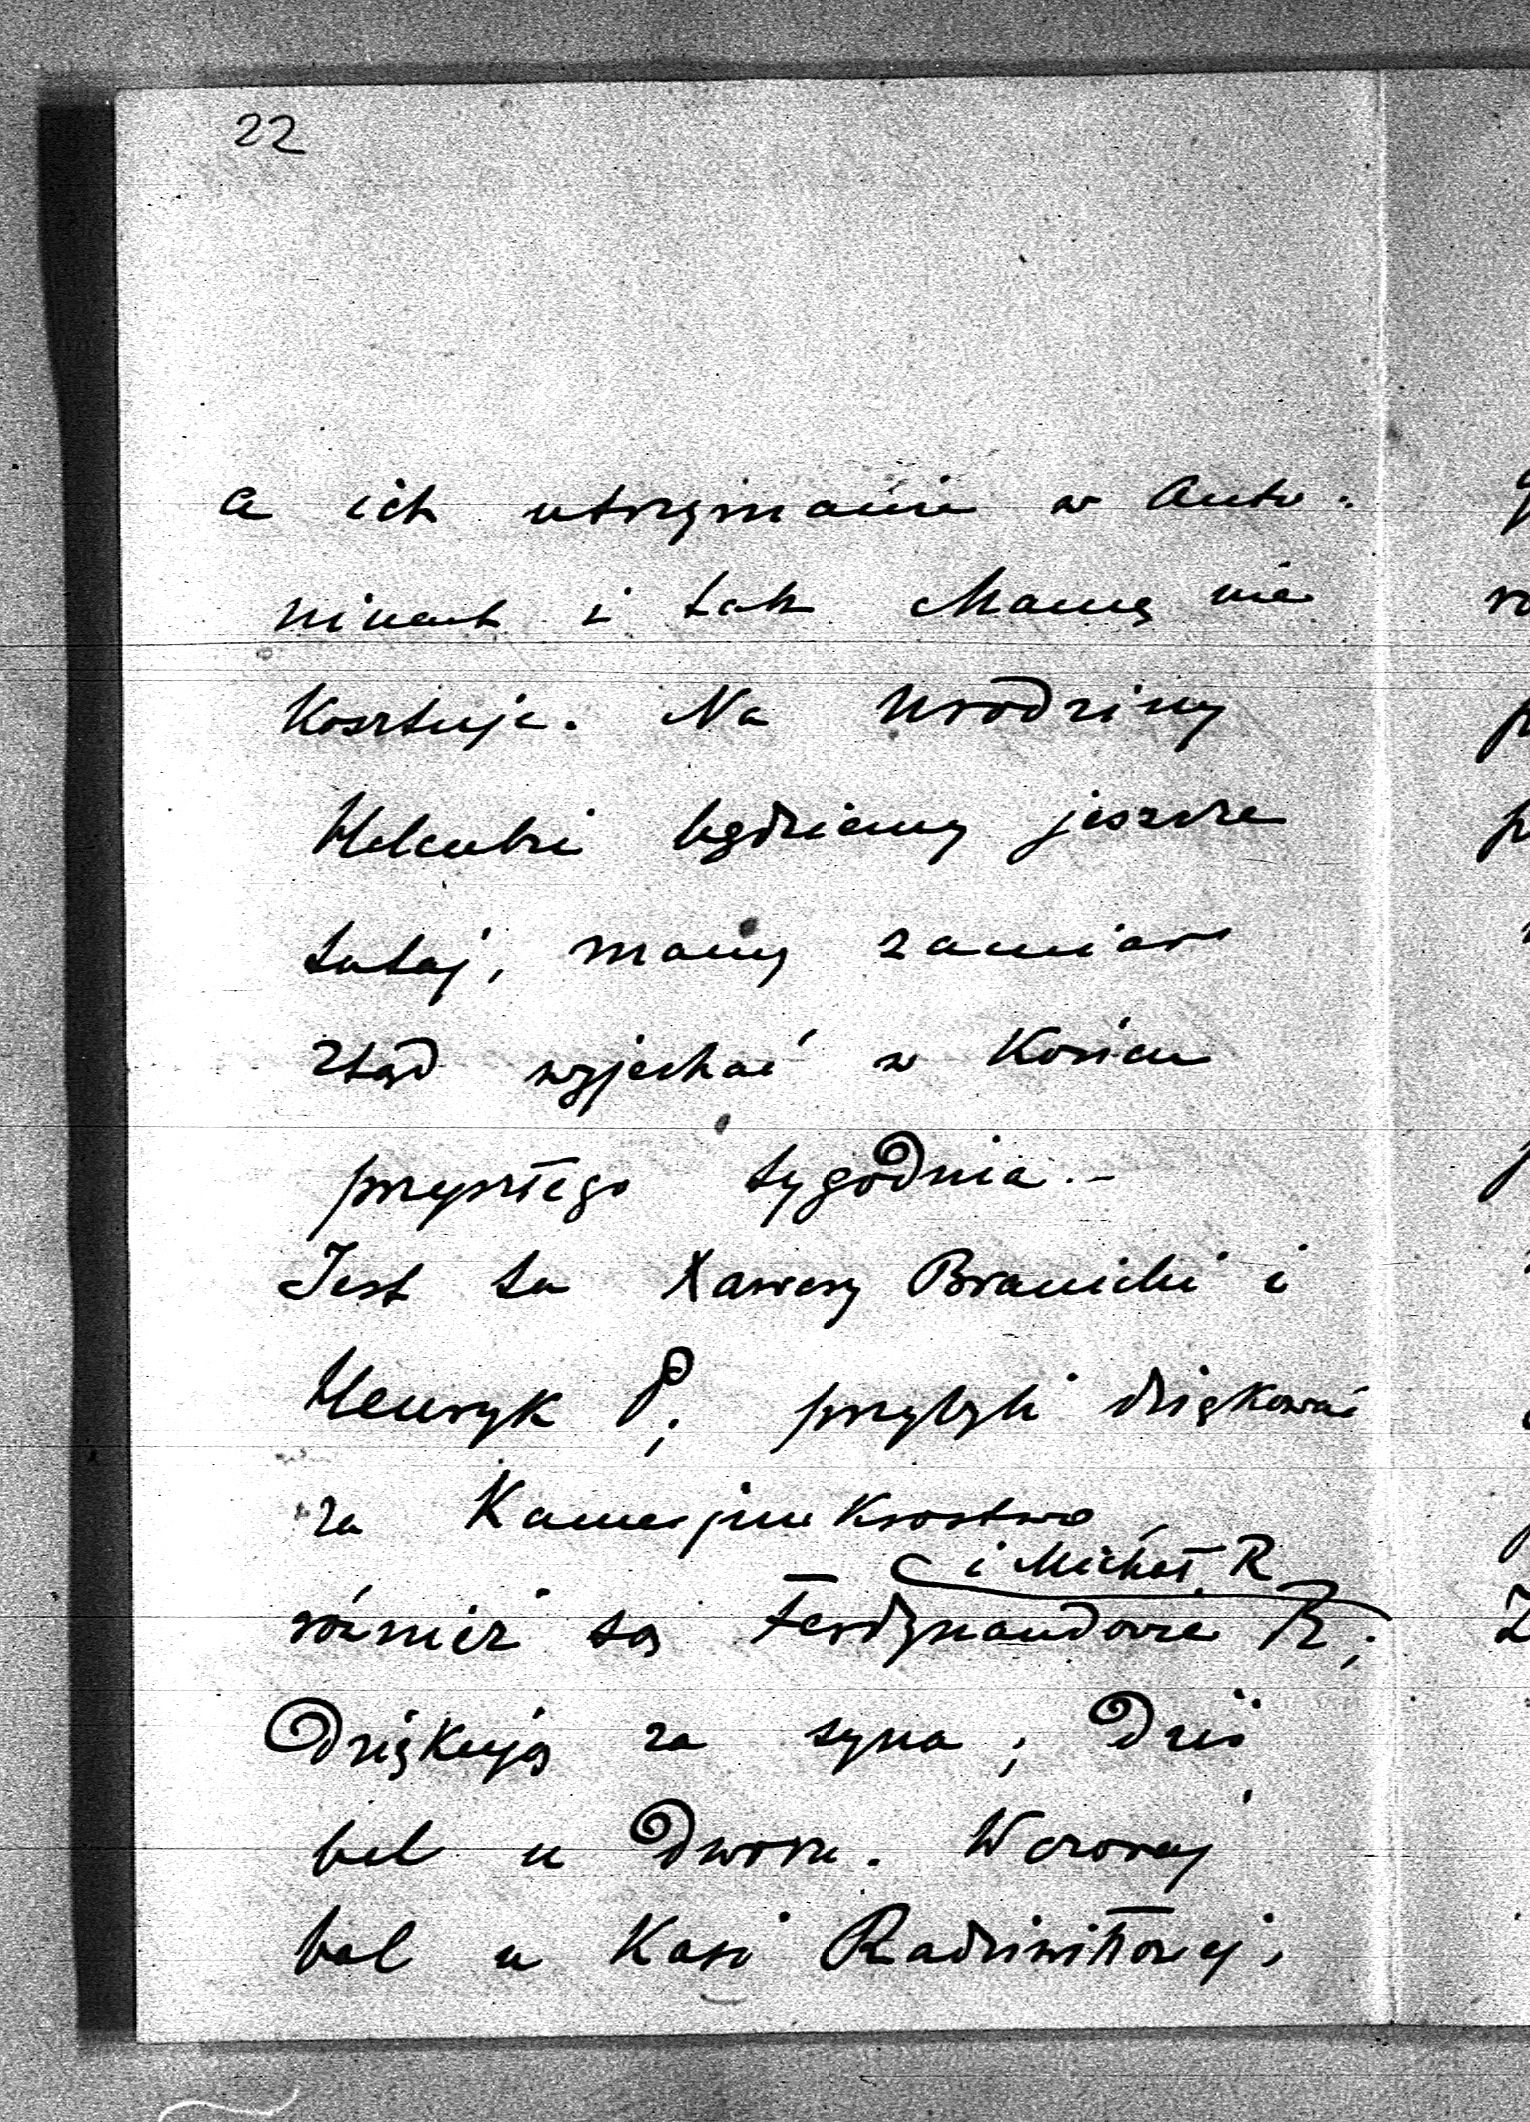 22
a ich utrzymanie w Anto-
ninach i tak Mamę nie
kosztuje. Na urodziny
Helenki będziemy jeszcze
tutaj, mamy zamiar
ztąd wyjechać w końcu
przyszłego tygodnia.-
Jest tu Xawery Branicki i
Henryk P; przybyli dziękować
za Kamerjunkrostwo,
i Michał R
również są Ferdynandowie R;
dziękują za syna; dziś
bal u Dworu. Wczoraj
bal u Kasi Radziwiłłowej,